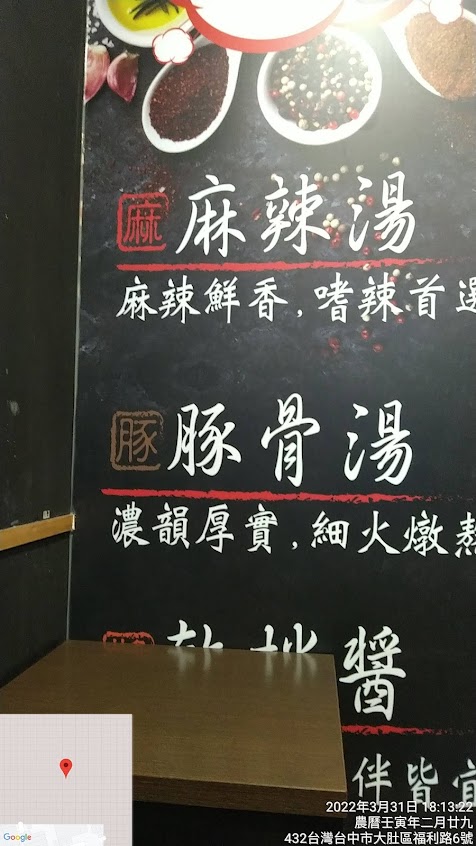 麻 麻辣湯
麻辣鮮香,嗜辣首選
豚 豚骨湯
濃韻厚實,細火燉熬
乾拌醬
伴皆宜
Google
2022年3月31日 18:13:22
農曆壬寅年二月廿九
432台灣台中市大肚區福利路6號